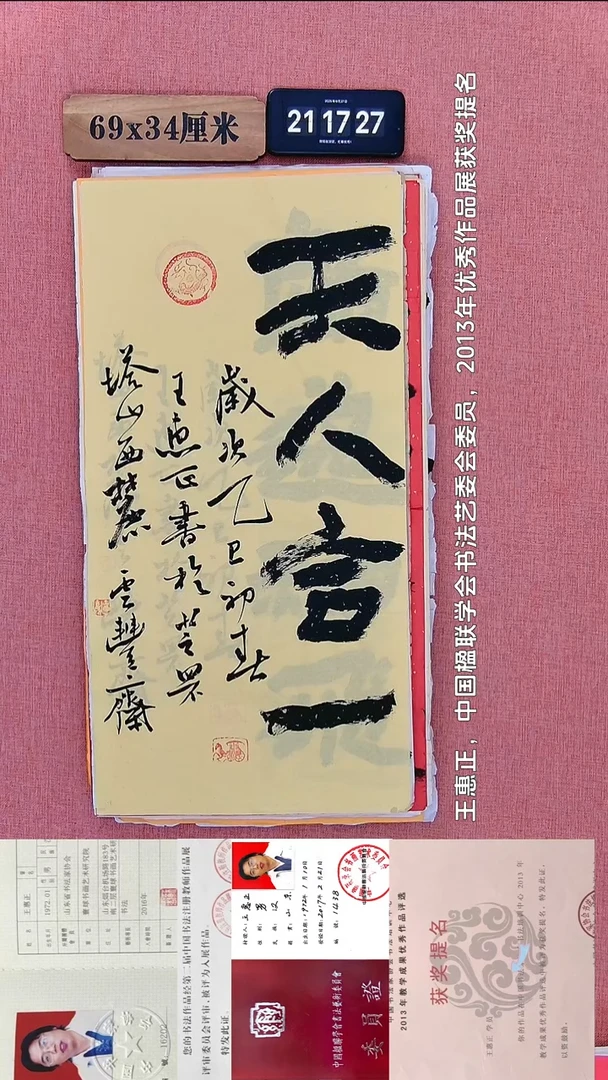 69x34厘米
21 17 27
天人合一
歲次乙巳初春
王惠正書於芝罘
塔山西麓雲豐齋
王惠正，中国楹联学会书法艺委会委员，2013年优秀作品展获奖提名
王惠正
男
1972.01
山东省书法家协会
书法
2016年
您的书法作品经第二届中国书法注册教师作品展
评审委员会评审，被评为入展作品。
特发此证
王惠正
男
汉
山东
中国楹联学会书法艺术委员会
委员證
2013年教学成果优秀作品评选
获奖提名
王惠正 学员
以资鼓励。